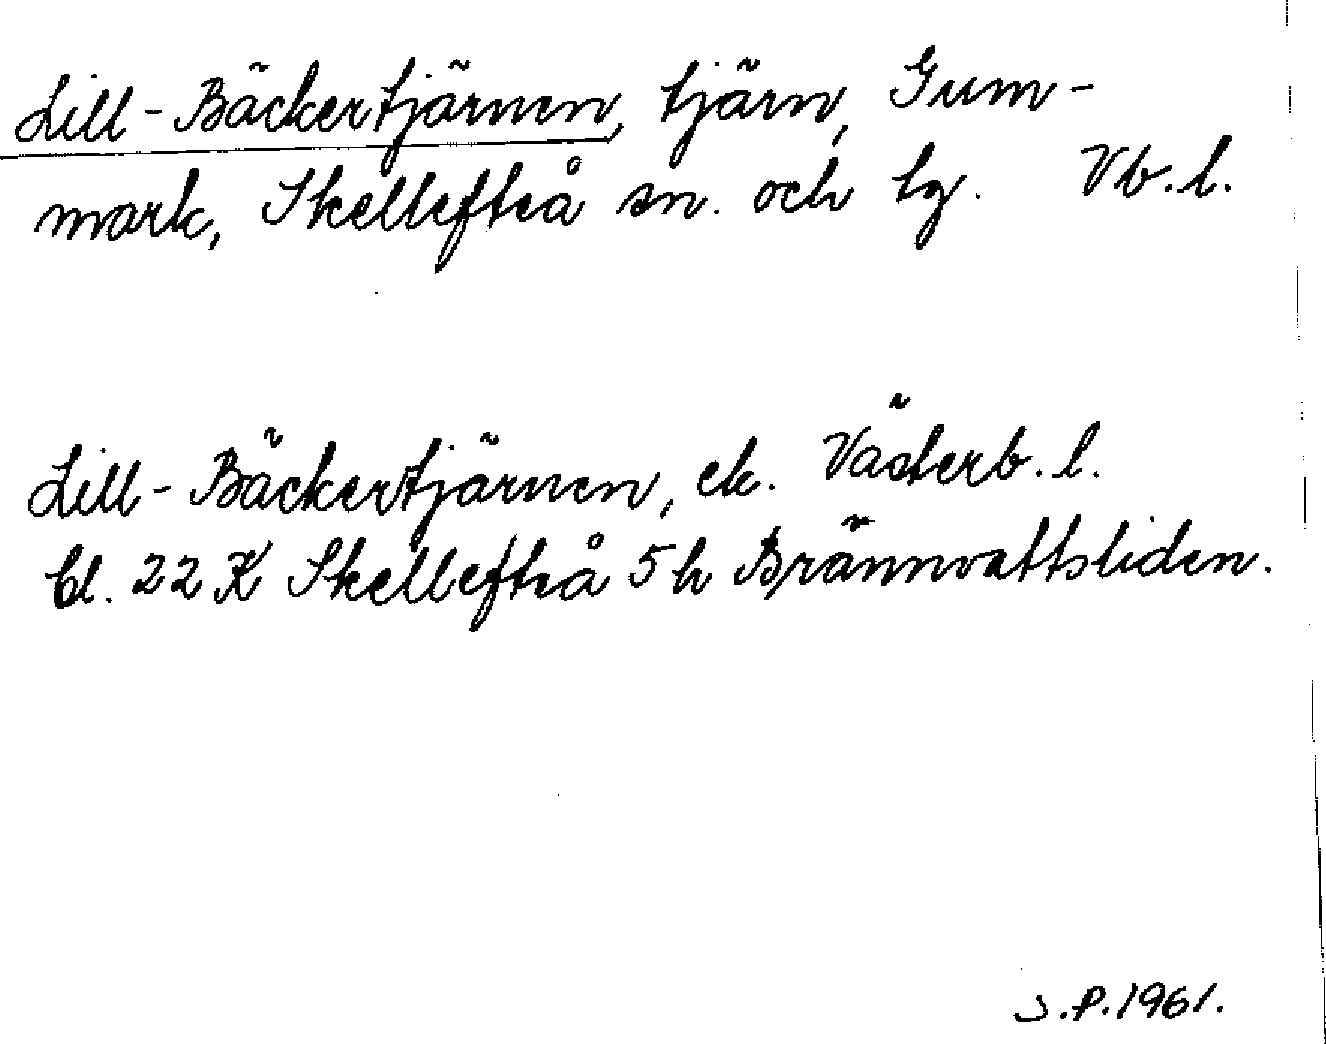 Lill-Bäckertjärnen, tjärn, Gum-
mark, Skellefteå sn. och tg. Vb.l.
Lill-Bäckertjärnen, ek. Västerb.l.
bl. 22 K Skellefteå 5 h Brännvattsliden.
J.P.1961.